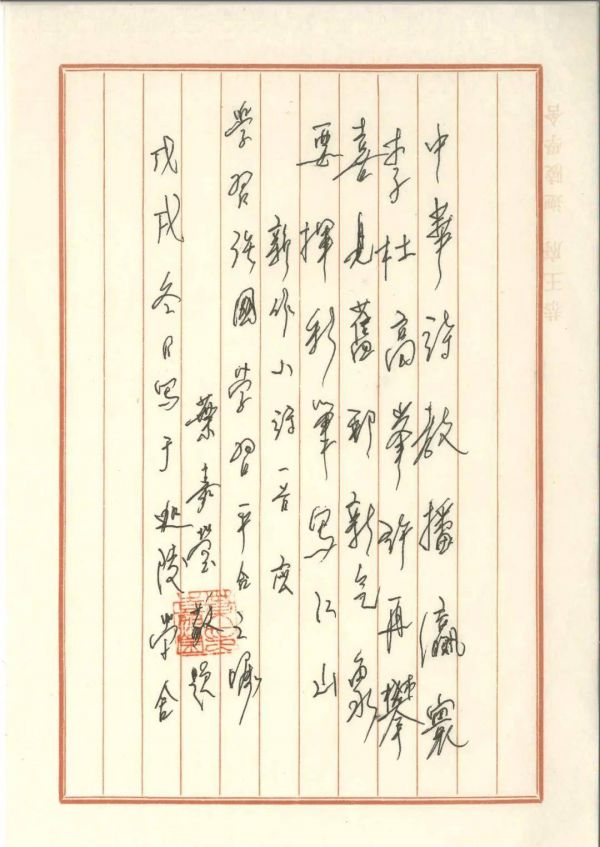 中華詩教播瀛寰
李杜高峯許再攀
喜見舊邦新气象
要揮彩筆写江山
新作小詩一首 应
学習强國学習平台之嘱
葉嘉莹敬題
戊戌冬日写于迦陵学舍
恭王府 迦陵學舍